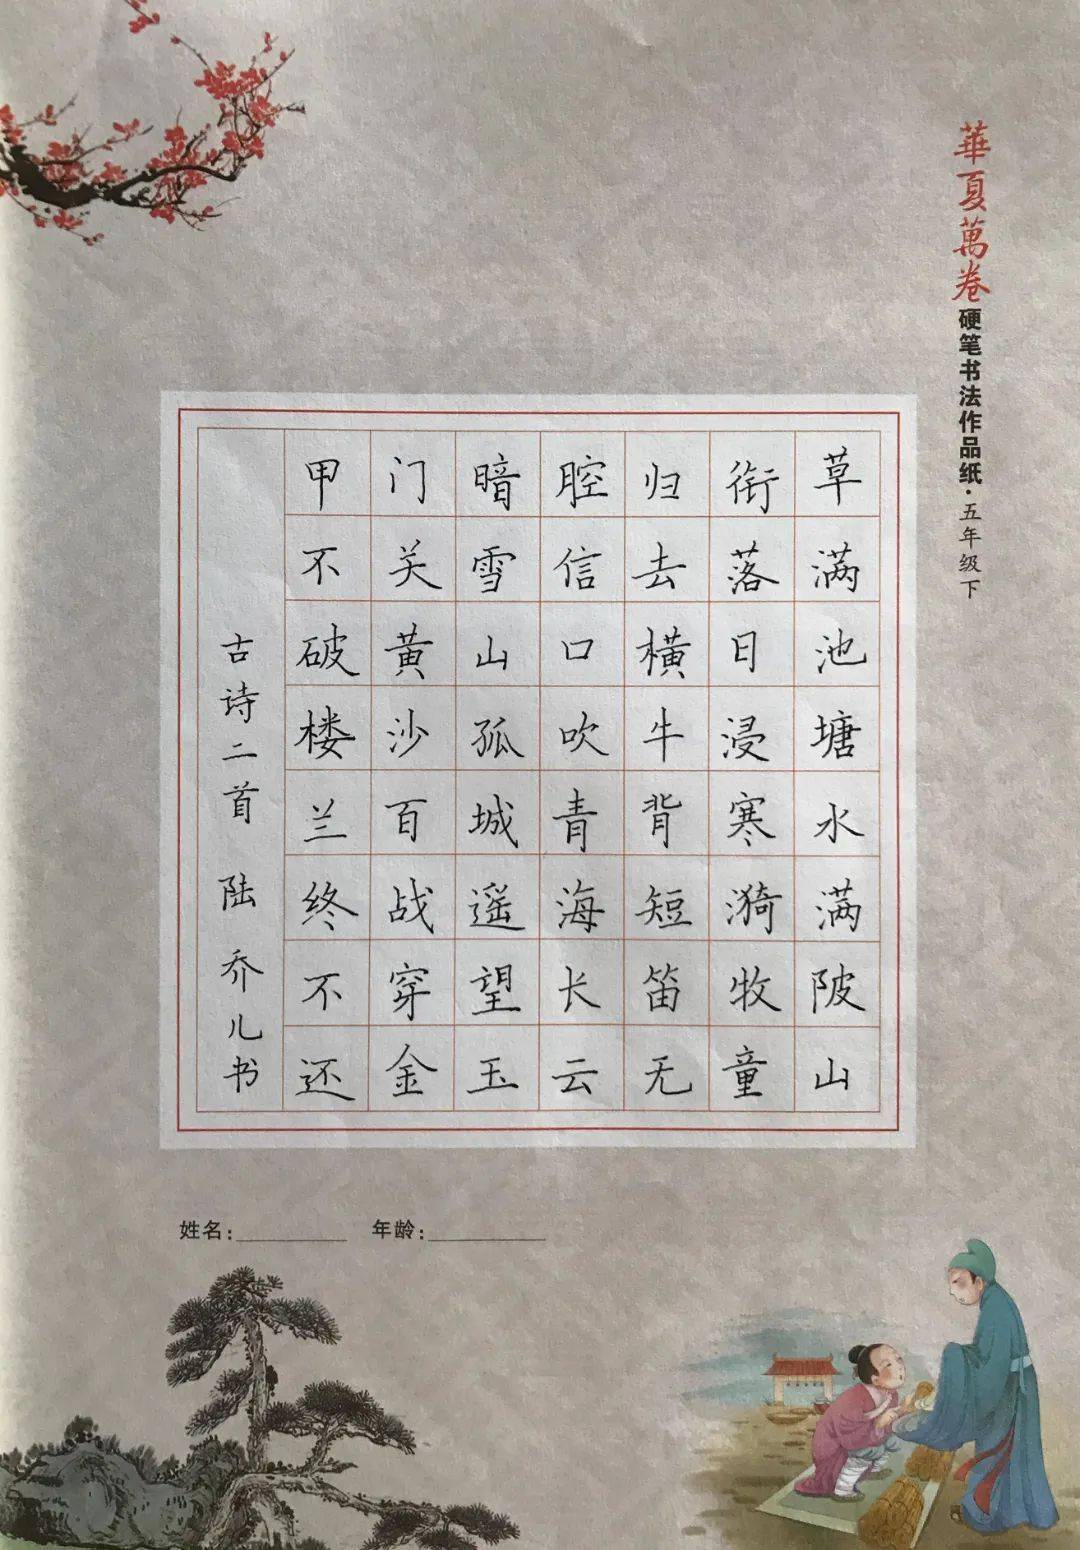 華夏萬卷硬笔书法作品纸·五年级下
草满池塘水满陂山
衔落日浸寒漪牧童
归去横牛背短笛无
腔信口吹青海长云
暗雪山孤城遥望玉
门关黄沙百战穿金
甲不破楼兰终不还
古诗二首 陆乔儿书
姓名: 年龄: